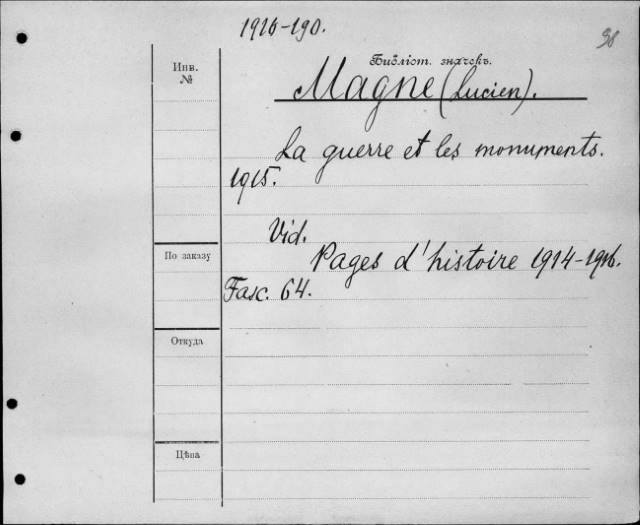 1916-190.
Библіот. значекъ.
Инв.
№
Magne (Lucien).
La guerre et les monuments.
1915.
Vid.
По заказу
Pages d'histoire 1914-1916.
Fasc. 64.
Откуда
Цѣна